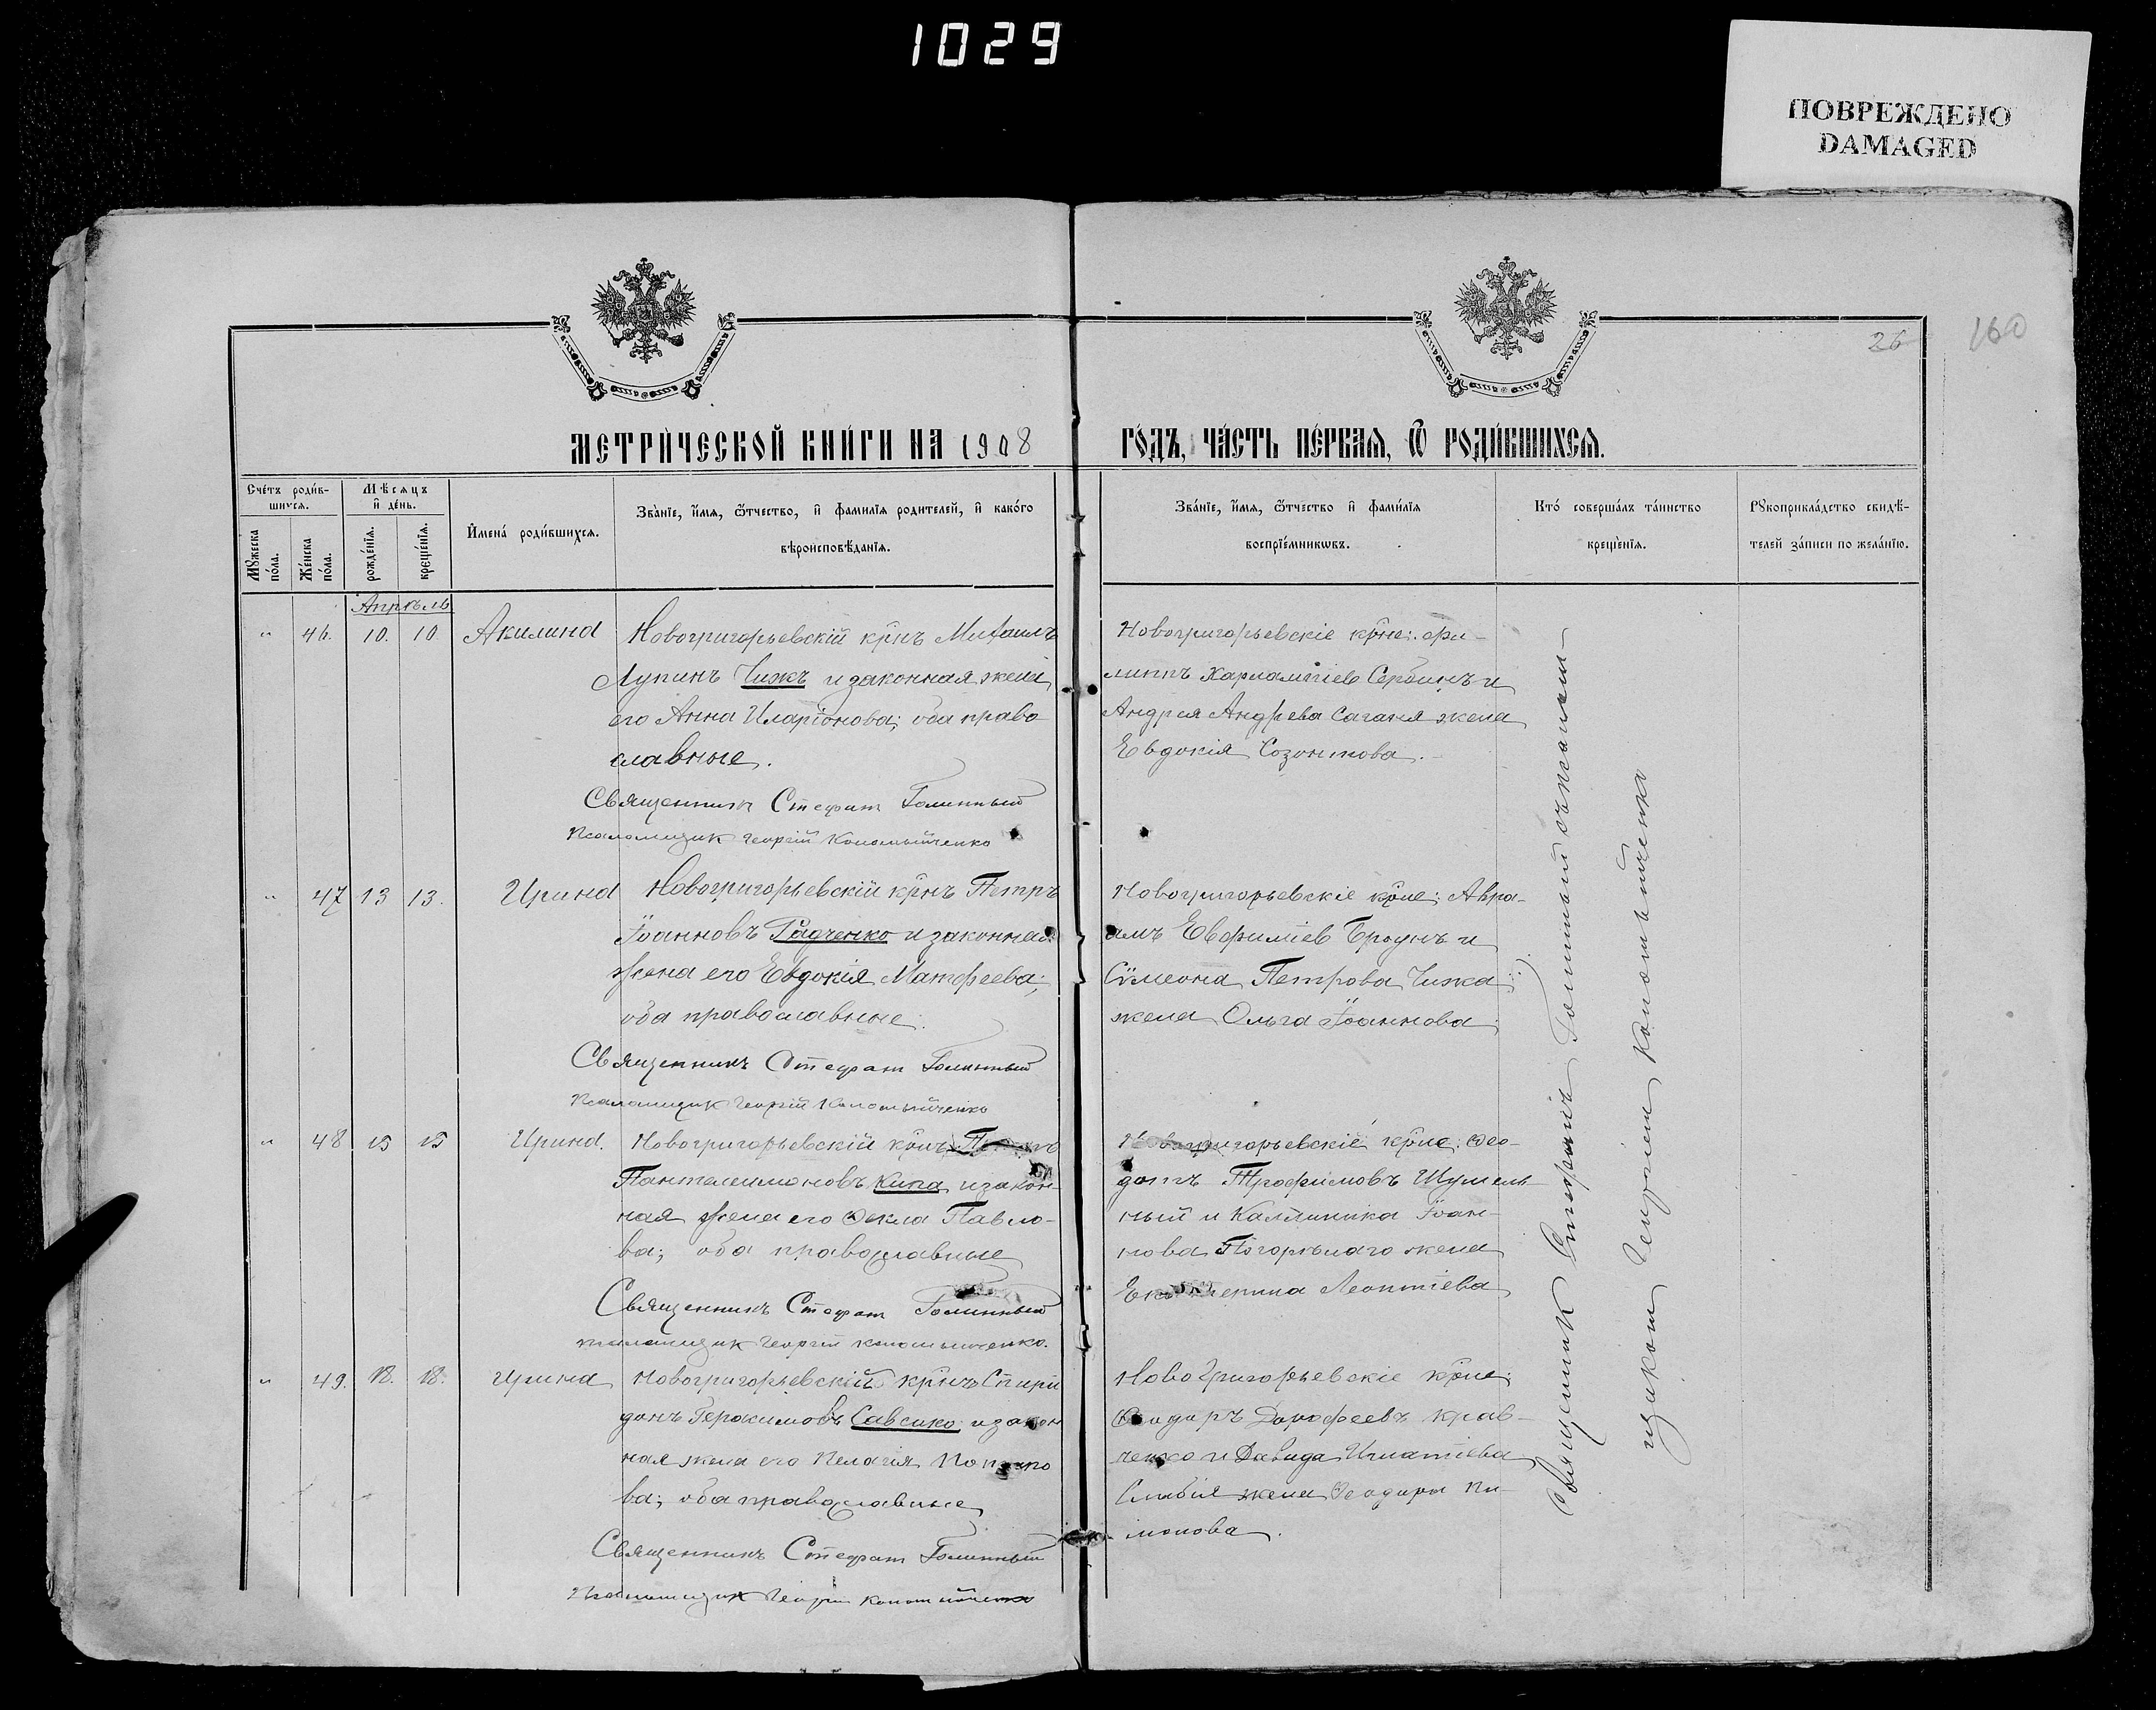 1029
ПОВРЕЖДЕНО
DAMAGED
26
160
МЕТРИ́ЧЕСКОЙ КНИ́ГИ НА 1908
ГО́ДЪ, ЧА́СТЬ ПЕ́РВАЯ, Ѿ РОДИ́ВШИХСЯ.
Сче́тъ роди́в-
шихся.
Мѣсяцъ
и де́нь.
Мꙋжеска по́ла.
Же́нска по́ла.
рожде́нїя.
креще́нїя.
Имена́ роди́вшихся.
Зва́нїе, и́мя, ѻ҆́тчество, и фами́лїя родителей, и како́го
вѣроисповѣ́данїя.
Зва́нїе, и́мя, ѻ҆́тчество и фами́лїя
воспрїе́мникѡвъ.
Кто́ соверша́лъ та́инство
креще́нїя.
Рꙋкоприкла́дство свидѣ́-
телей за́писи по жела́нїю.
Апрѣль
" 46. 10. 10. Акилина
Новогригорьевскій крнъ Михаилъ
Лупинъ Чижъ и законная жена
его Анна Иларіонова; оба право
славные.
Священникъ Стефан Голинный
Псаломщик Георгій Коломыйченко
Новогригорьевскіе крне: Фи-
липпъ Харлампіев Сербинъ и
Андрея Андреева Саганя жена
Евдокія Созонтова.
" 47 13 13. Ирина
Новогригорьевскій крнъ Петръ
Іоанновъ Радченко и законная
жена его Евдокія Матфеева;
оба православные.
Священникъ Стефан Голинный
Псаломщик Георгій Коломыйченко
Новогригорьевскіе крне: Авра-
амъ Евфиміев Бродунъ и
Сѵмеона Петрова Чижа
жена Ольга Іоаннова
" 48 15 15 Ирина.
Новогригорьевскій крнъ
Пантелеимоновъ Кипа и закон-
ная жена его Ѳекла Павло-
ва; оба православные
Священникъ Стефан Голинный
Псаломщик Георгій Коломыйченко.
Новогригорьевскіе крне: Ѳео-
дотъ Трофимовъ Шумель-
ный и Каллиника Іоан-
нова Погорѣлаго жена
Екатерина Леонтіева
" 49. 18. 18. Ирина
Новогригорьевскій крнъ Спири
донъ Герасимовъ Савенко и закон
ная жена его Пелагія
ва; оба православные
Священникъ Стефан Голинный
Псаломщик Георгій Коломыйченко
Новогригорьевскіе крне:
Ѳеодоръ Дорофеевъ Крав-
ченко и Давида Игнатіева
жена Ѳеодора Пи-
монова.
Священник Стефанъ Голинный съ псалом-
щиком Георгіем Коломыйченко